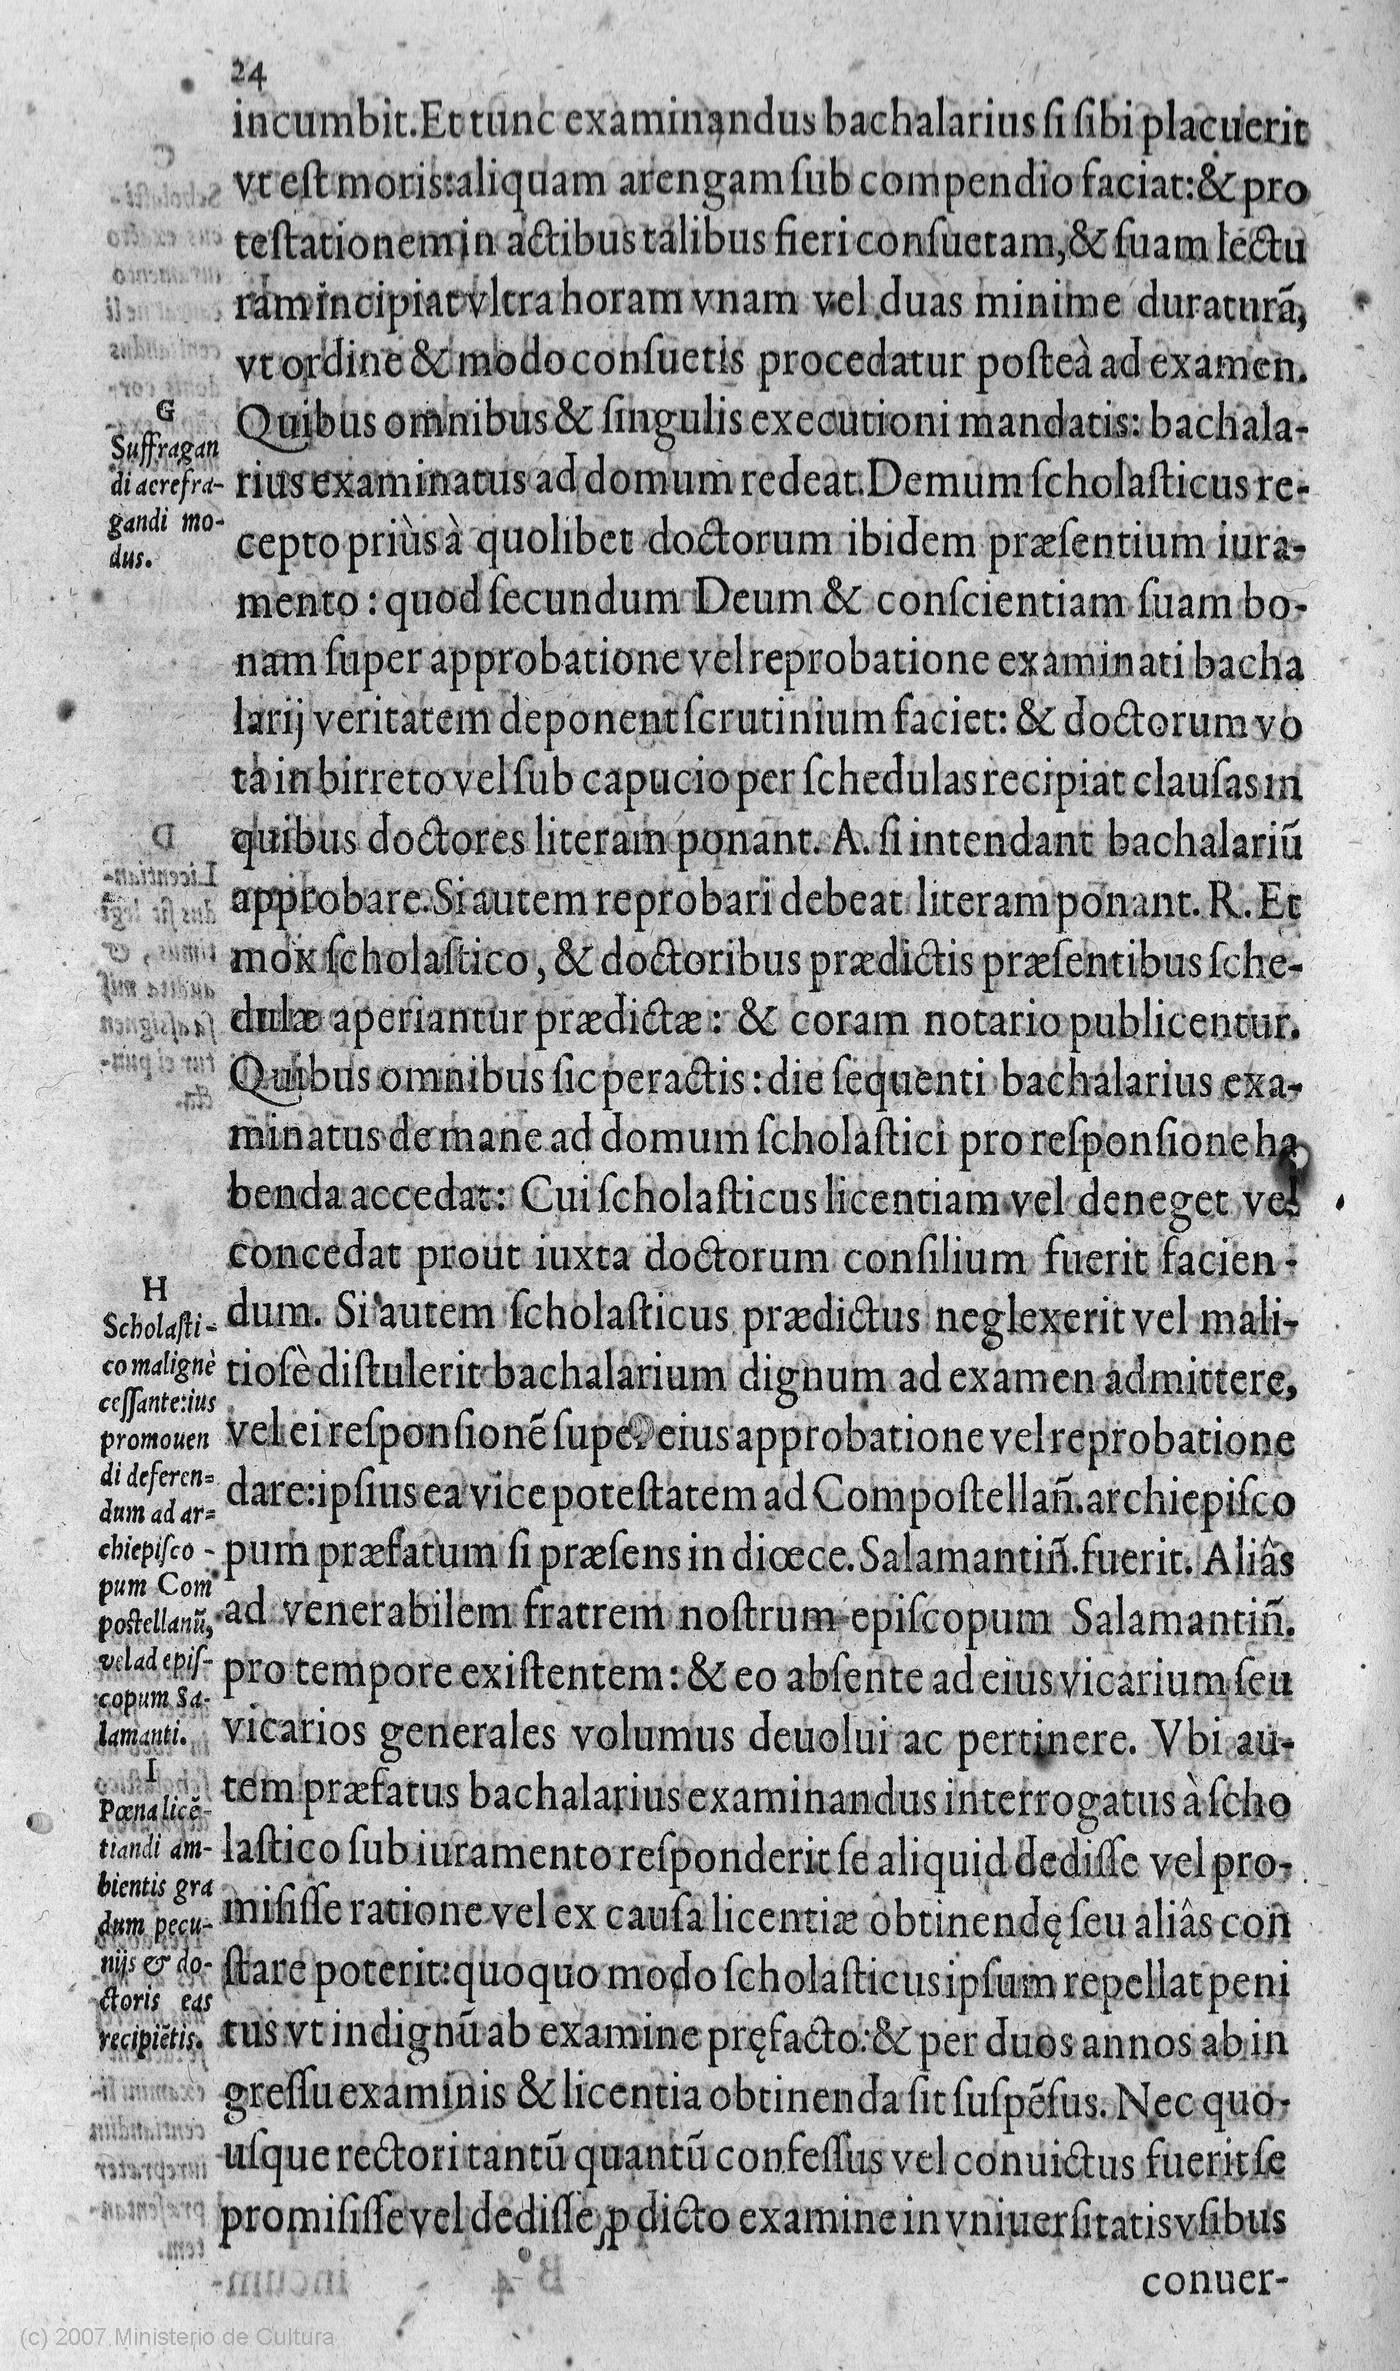 24
incumbit. Et tunc examinandus bachalarius si sibi placuerit
vt est moris: aliquam arengam sub compendio faciat: & pro
testationem in actibus talibus fieri consuetam, & suam lectu
ram incipiat vltra horam vnam vel duas minime duraturã,
vt ordine & modo consuetis procedatur posteà ad examen.
Quibus omnibus & singulis executioni mandatis: bachala-
rius examinatus ad domum redeat. Demum scholasticus re-
cepto priùs à quolibet doctorum ibidem præsentium iura-
mento: quod secundum Deum & conscientiam suam bo-
nam super approbatione vel reprobatione examinati bacha
larij veritatem deponent scrutinium faciet: & doctorum vo
ta in birreto vel sub capucio per schedulas recipiat clausas in
quibus doctores literam ponant. A. si intendant bachalariũ
approbare. Si autem reprobari debeat literam ponant. R. Et
mox scholastico, & doctoribus prædictis præsentibus sche-
dulæ aperiantur prædictæ: & coram notario publicentur.
Quibus omnibus sic peractis: die sequenti bachalarius exa-
minatus de mane ad domum scholastici pro responsione ha
benda accedat: Cui scholasticus licentiam vel deneget vel
concedat prout iuxta doctorum consilium fuerit facien-
dum. Si autem scholasticus prædictus neglexerit vel mali-
tiosè distulerit bachalarium dignum ad examen admittere,
vel ei responsionẽ super eius approbatione vel reprobatione
dare: ipsius ea vice potestatem ad Compostellañ. archiepisco
pum præfatum si præsens in diœce. Salamantiñ. fuerit. Aliâs
ad venerabilem fratrem nostrum episcopum Salamantiñ.
pro tempore existentem: & eo absente ad eius vicarium seu
vicarios generales volumus deuolui ac pertinere. Vbi au-
tem præfatus bachalarius examinandus interrogatus à scho
lastico sub iuramento responderit se aliquid dedisse vel pro-
misisse ratione vel ex causa licentiæ obtinendę seu aliâs con
stare poterit: quoquo modo scholasticus ipsum repellat peni
tus vt indignũ ab examine pręfacto: & per duos annos ab in
gressu examinis & licentia obtinenda sit suspẽsus. Nec quo-
usque rectori tantũ quantũ confessus vel conuictus fuerit se
promisisse vel dedisse ꝓ dicto examine in vniuersitatis vsibus
conuer-
G
Suffragan
di ac refra-
gandi mo-
dus.
H
Scholasti-
co malignè
cessante: ius
promouen
di deferen-
dum ad ar-
chiepisco -
pum Com
postellanũ,
vel ad epis-
copum Sa-
lamanti.
I
Pœna licẽ-
tiandi am-
bientis gra
dum pecu-
nijs & do-
ctoris eas
recipiẽtis.
(c) 2007 Ministerio de Cultura